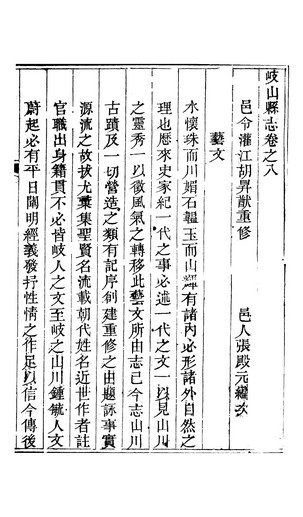 岐山縣志卷之八
邑令灌江胡昇猷重修　邑人張殿元纘次
藝文
水懷珠而川媚石韞玉而山輝有諸內必形諸外自然之
理也歷來史家紀一代之事必述一代之文一以見山川
之靈秀一以徵風氣之轉移此藝文所由志已今志山川
古蹟及一切營造之類有記序創建重修之由題詠事實
源流之故拔尤彙集聖賢名流載朝代姓名近世作者註
官職出身籍貫不必皆岐人之文至岐之山川鍾毓人文
蔚起必有平日闡明經義發抒性情之作足以信今傳後